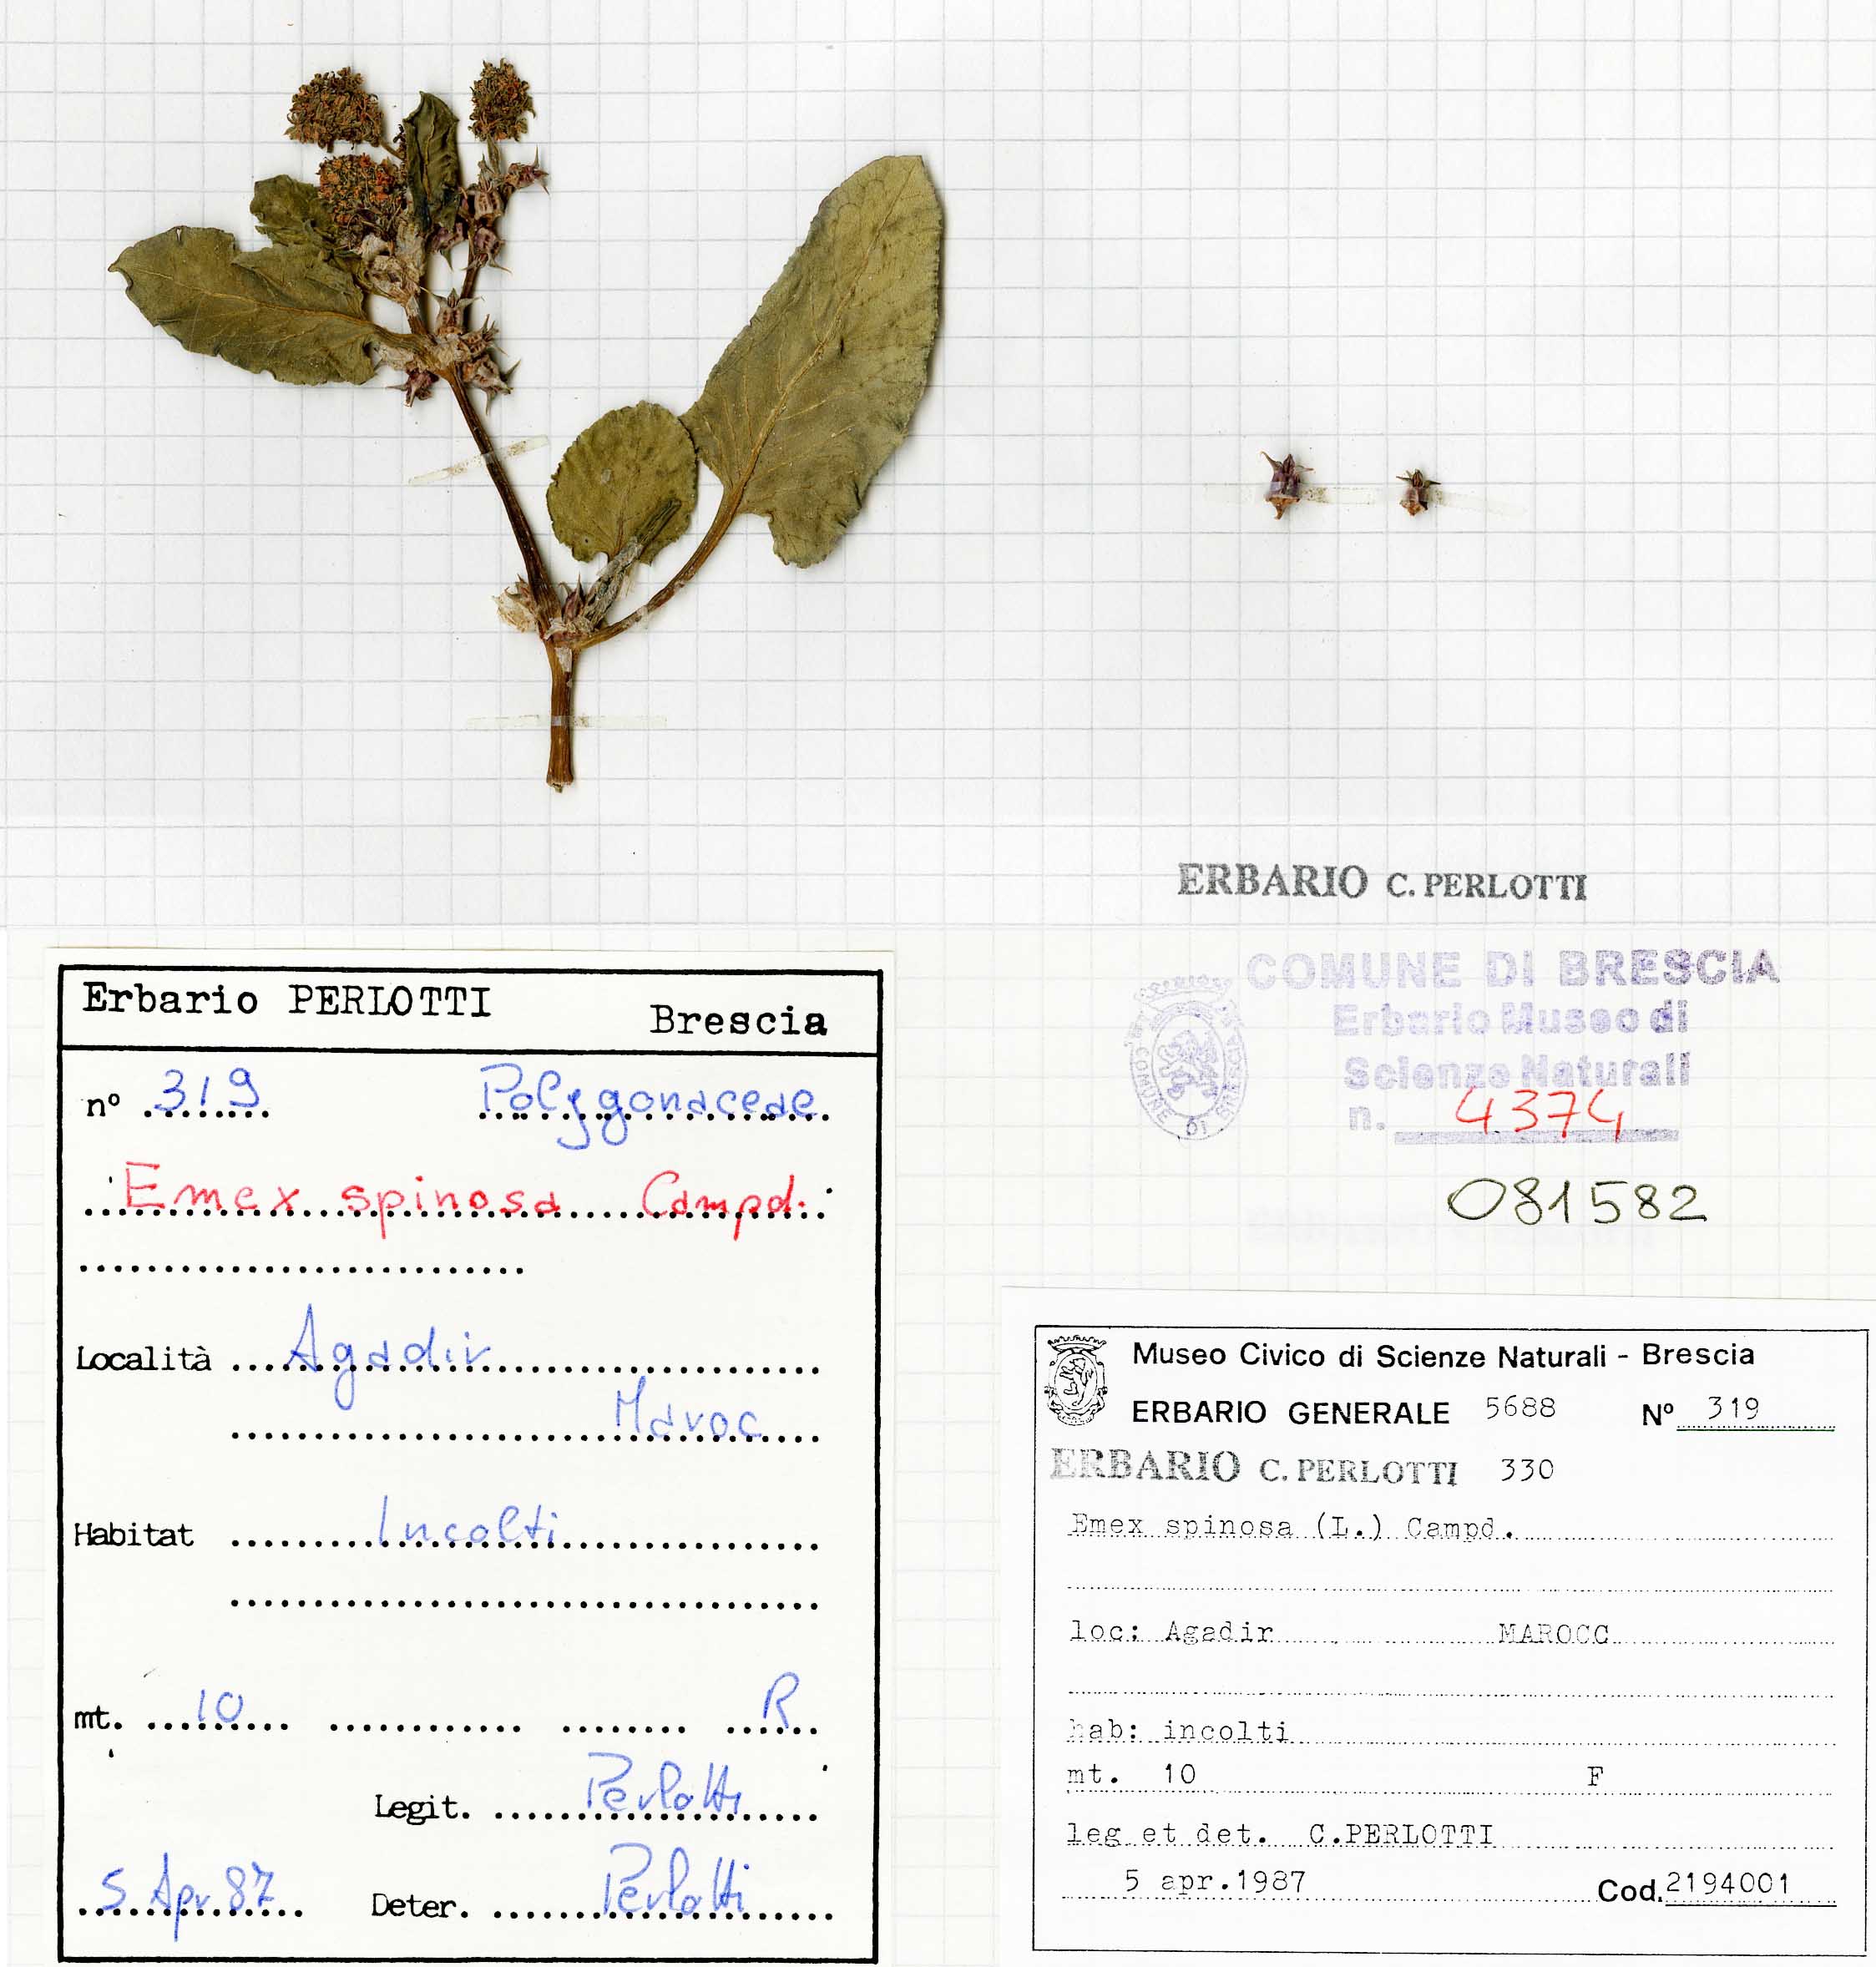 ERBARIO C. PERLOTTI
COMUNE DI BRESCIA
Erbario Museo di
Scienze Naturali
n. 4374
COMUNE DI BRESCIA
081582
Erbario PERLOTTI Brescia
n° 319 Polygonaceae
Emex spinosa Campd.
Località Agadir
Maroc
Habitat Incolti
mt. 10 R
Legit. Perlotti
5 Apr 87 Deter. Perlotti
Museo Civico di Scienze Naturali - Brescia
ERBARIO GENERALE 5688 N° 319
ERBARIO C. PERLOTTI 330
Emex spinosa (L.) Campd.
loc: Agadir MAROCC
hab: incolti
mt. 10 F
leg et det. C.PERLOTTI
5 apr.1987 Cod. 2194001